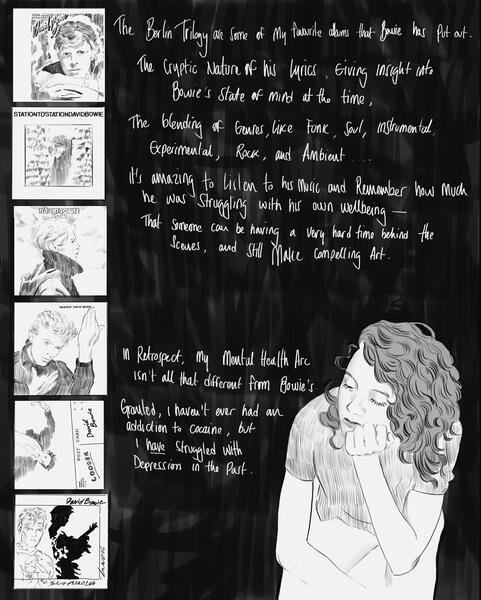 David Bowie
STATIONTOSTATIONDAVIDBOWIE
DAVID BOWIE
LOW
"HEROES" DAVID BOWIE
POST CARD
David Bowie
LODGER
David Bowie
The Berlin Trilogy are some of My favourite albums that Bowie has put out.
The Cryptic Nature of his lyrics, Giving insight into
Bowie's state of mind at the time,
The blending of Genres, Like Funk, Soul, instrumental,
Experimental, Rock, and Ambient ....
it's amazing to listen to his Music and Remember how Much
he was struggling with his own wellbeing —
That someone can be having a very hard time behind the
Scenes, and still Make compelling Art.
in Retrospect, my Mental Health Arc
isn't all that different from Bowie's.
Granted, I haven't ever had an
addiction to cocaine, but
I have struggled with
Depression in the Past.